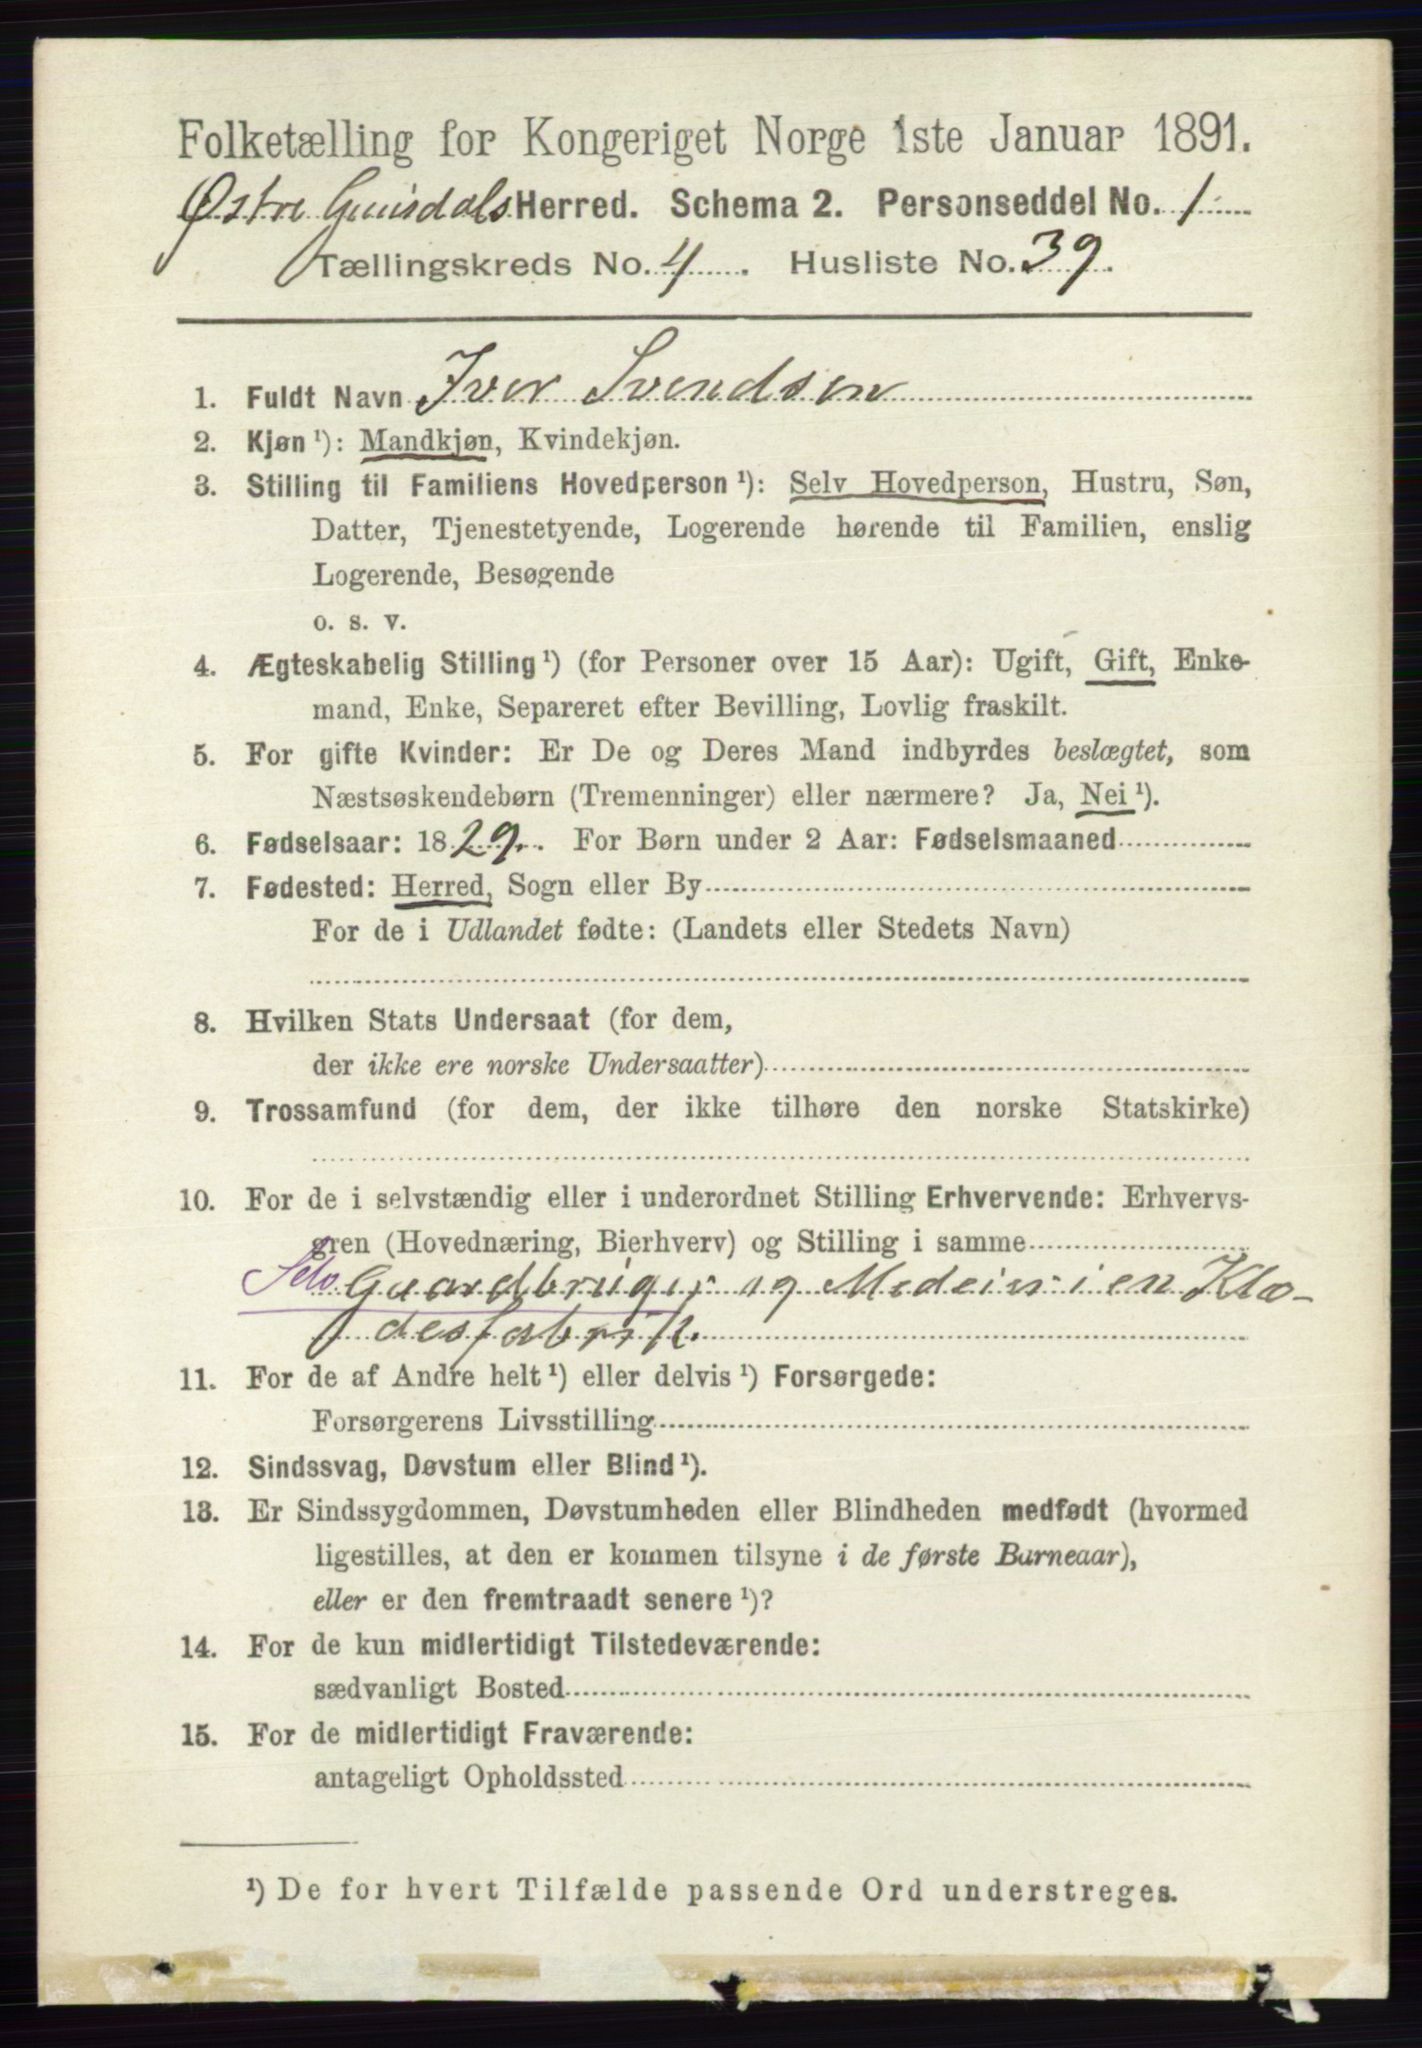 Folketælling for Kongeriget Norge 1ste Januar 1891.
Østre Gausdals Herred. Schema 2. Personseddel No. 1
Tællingskreds No. 4. Husliste No. 39.
1. Fuldt Navn Iver Svendsen
2. Kjøn ¹): Mandkjøn, Kvindekjøn.
3. Stilling til Familiens Hovedperson ¹): Selv Hovedperson, Hustru, Søn,
Datter, Tjenestetyende, Logerende hørende til Familien, enslig
Logerende, Besøgende
o. s. v.
4. Ægteskabelig Stilling ¹) (for Personer over 15 Aar): Ugift, Gift, Enke-
mand, Enke, Separeret efter Bevilling, Lovlig fraskilt.
5. For gifte Kvinder: Er De og Deres Mand indbyrdes beslægtet, som
Næstsøskendebørn (Tremenninger) eller nærmere? Ja, Nei ¹).
6. Fødselsaar: 1829. For Børn under 2 Aar: Fødselsmaaned
7. Fødested: Herred, Sogn eller By
For de i Udlandet fødte: (Landets eller Stedets Navn)
8. Hvilken Stats Undersaat (for dem,
der ikke ere norske Undersaatter)
9. Trossamfund (for dem, der ikke tilhøre den norske Statskirke)
10. For de i selvstændig eller i underordnet Stilling Erhvervende: Erhvervs-
gren (Hovednæring, Bierhverv) og Stilling i samme
Selv Gaardbruger og Medeier i en Klæ-
desfabrik.
11. For de af Andre helt ¹) eller delvis ¹) Forsørgede:
Forsørgerens Livsstilling
12. Sindssvag, Døvstum eller Blind ¹).
13. Er Sindssygdommen, Døvstumheden eller Blindheden medfødt (hvormed
ligestilles, at den er kommen tilsyne i de første Barneaar),
eller er den fremtraadt senere ¹)?
14. For de kun midlertidigt Tilstedeværende:
sædvanligt Bosted
15. For de midlertidigt Fraværende:
antageligt Opholdssted
¹) De for hvert Tilfælde passende Ord understreges.